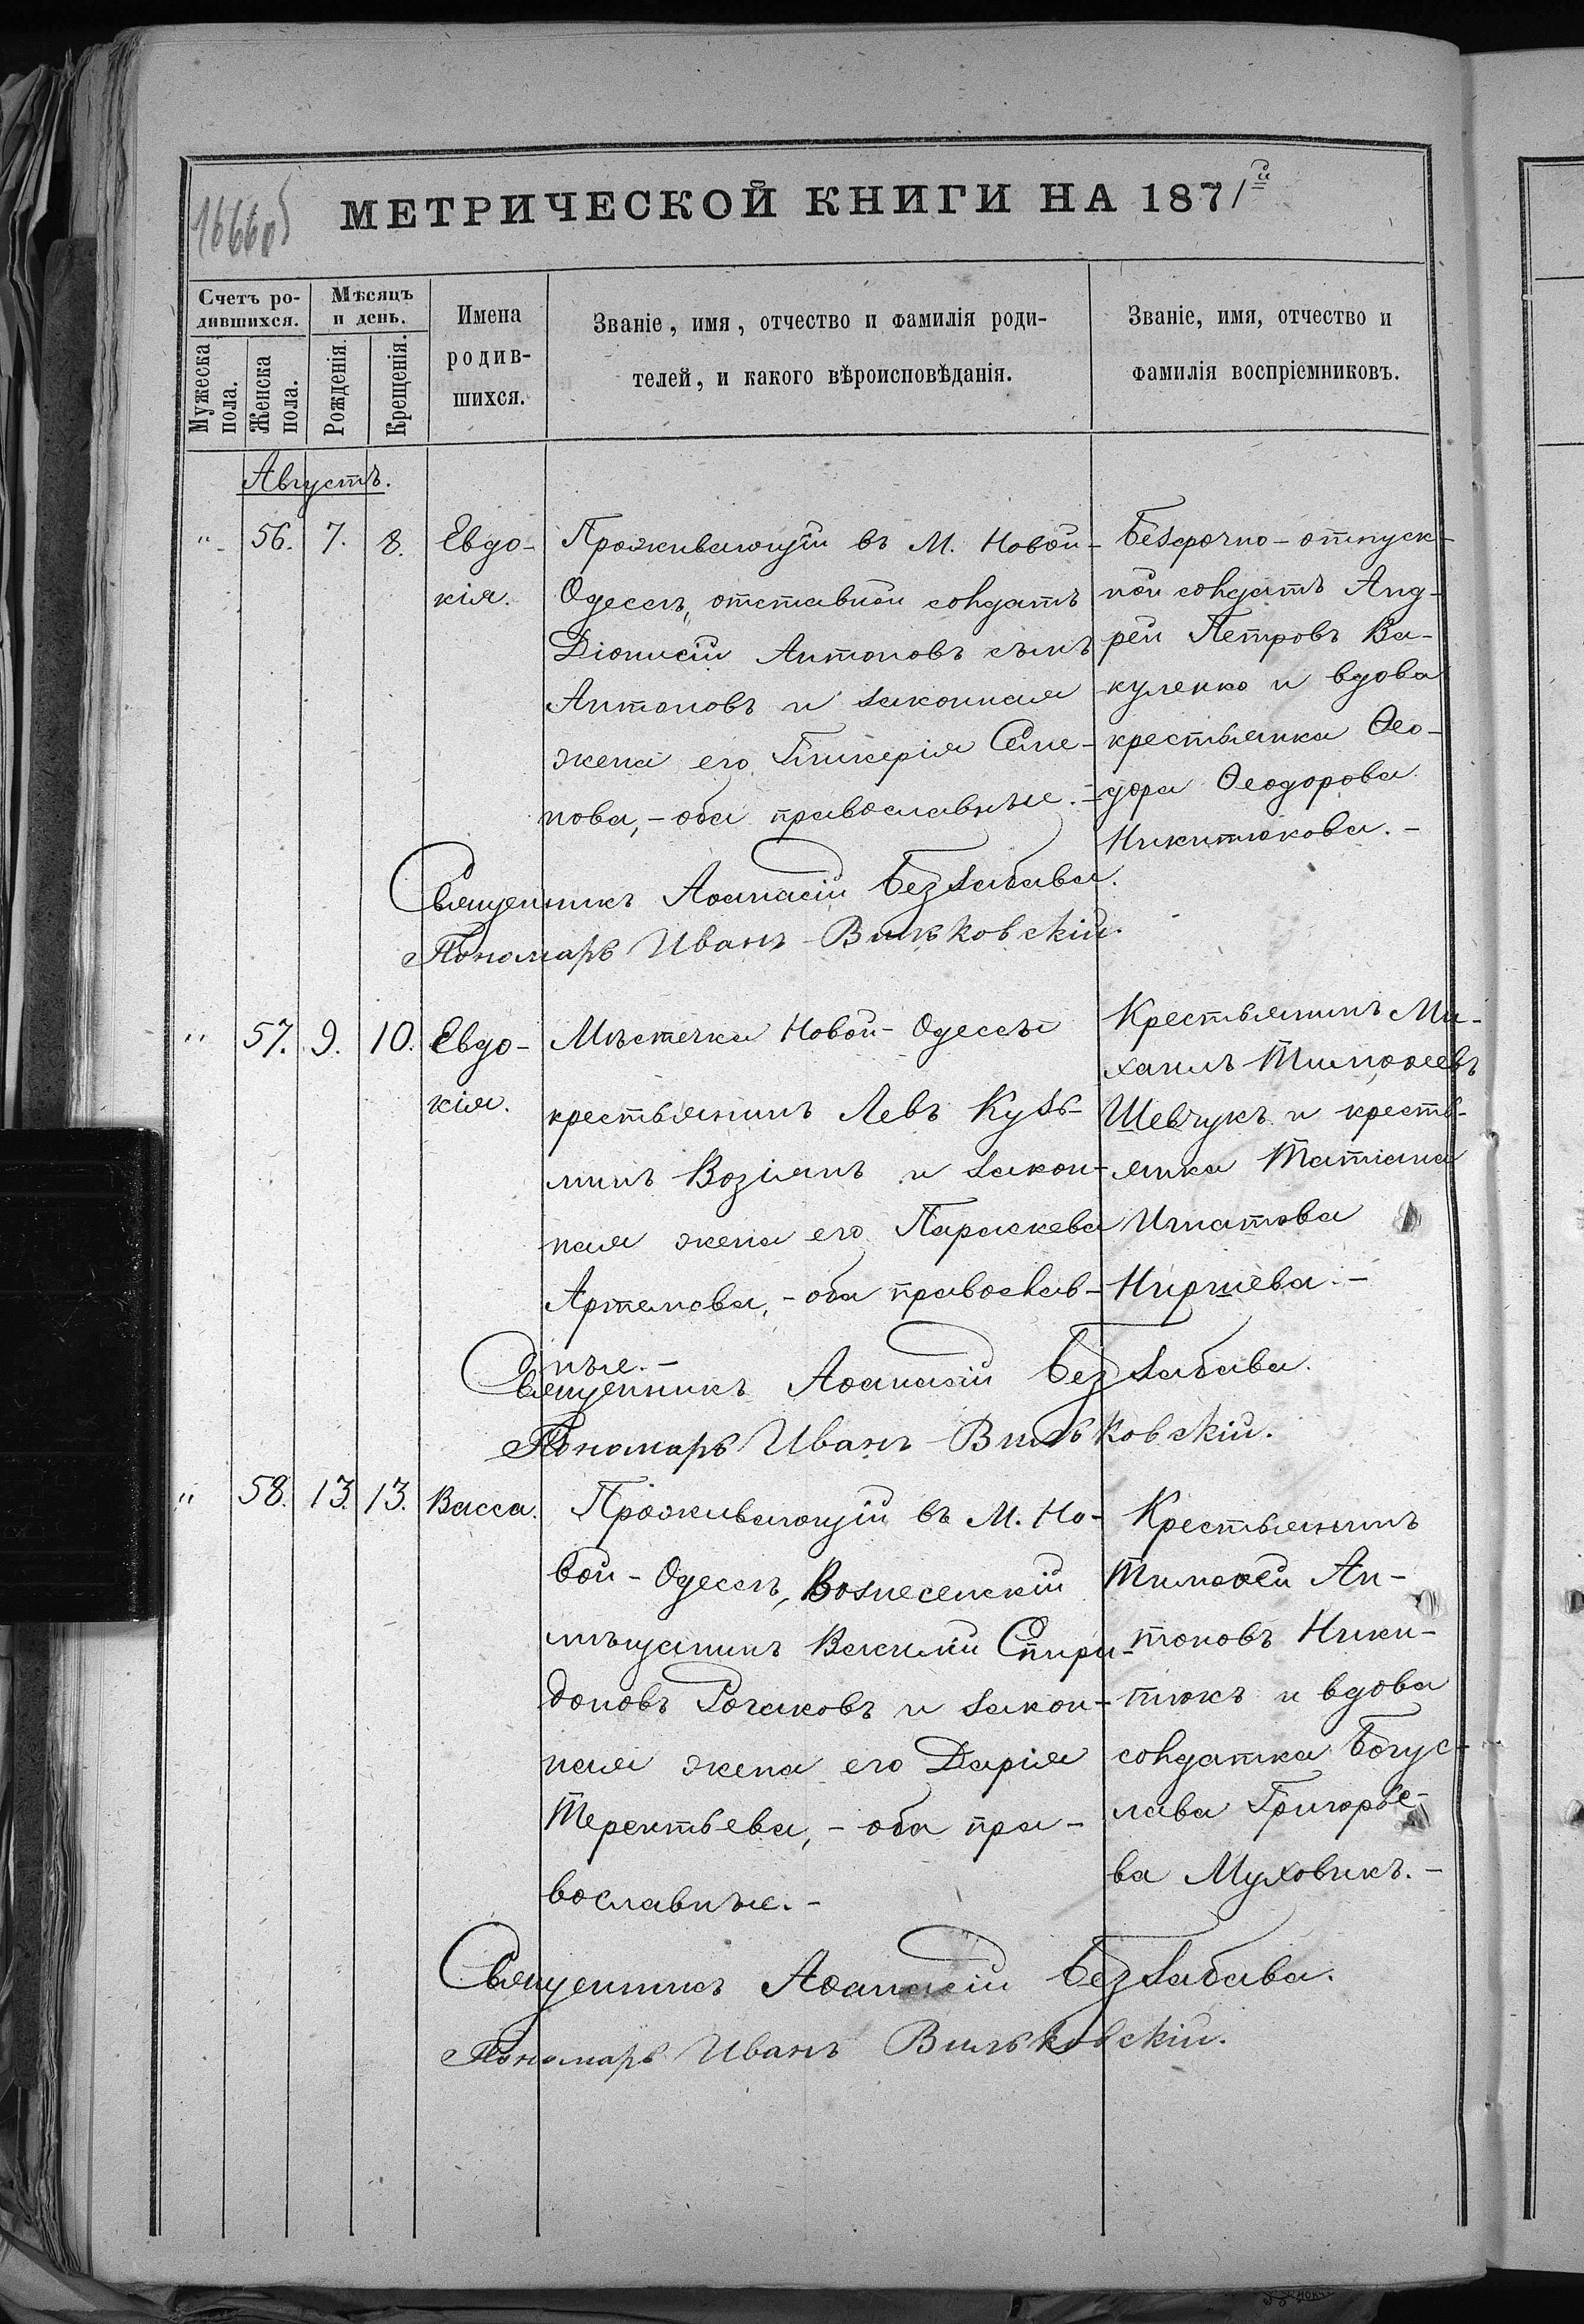 1666об
МЕТРИЧЕСКОЙ КНИГИ НА 1871й
Счетъ ро-
дившихся.
Мѣсяцъ
и день.
Мужеска
пола.
Женска
пола.
Рожденія.
Крещенія.
Имена
родив-
шихся.
Званіе, имя, отчество и фамилія роди-
телей, и какого вѣроисповѣданія.
Званіе, имя, отчество и
фамилія воспріемниковъ.
Августъ.
" 56. 7. 8.
Евдо-
кія.
Проживающій въ М. Новой-
Одессѣ, отставной солдатъ
Діонисій Антоновъ сынъ
Антоновъ и законная
жена его Гликерія Семе-
нова, - оба православные. -
Безсрочно-отпуск-
ной солдатъ Анд-
рей Петровъ Ва-
куленко и вдова
крестьянка Ѳео-
дора Ѳеодорова
Никитюкова. -
Священникъ Аѳанасій Беззабава.
Пономарь Иванъ Вильковскій.
" 57. 9. 10.
Евдо-
кія.
Мѣстечка Новой-Одессы
крестьянинъ Левъ Кузь-
минъ Возіянъ и закон-
ная жена его Параскева
Артемова, - оба православ-
ные. -
Крестьянинъ Ми-
хаилъ Тимоѳеевъ
Шевчукъ и кресть-
янка Татіана
Игнатова
Ниршева. -
Священникъ Аѳанасій Беззабава.
Пономарь Иванъ Вильковскій.
" 58. 13. 13.
Васса.
Проживающій въ М. Но-
вой-Одессѣ, Вознесенскій
мѣщанинъ Василій Спири-
доновъ Рогаковъ и закон-
ная жена его Дарія
Терентьева, - оба пра-
вославные. -
Крестьянинъ
Тимоѳей Ан-
тоновъ Ники-
тюкъ и вдова
солдатка Богус-
лава Григорье-
ва Муховикъ. -
Священникъ Аѳанасій Беззабава.
Пономарь Иванъ Вильковскій.